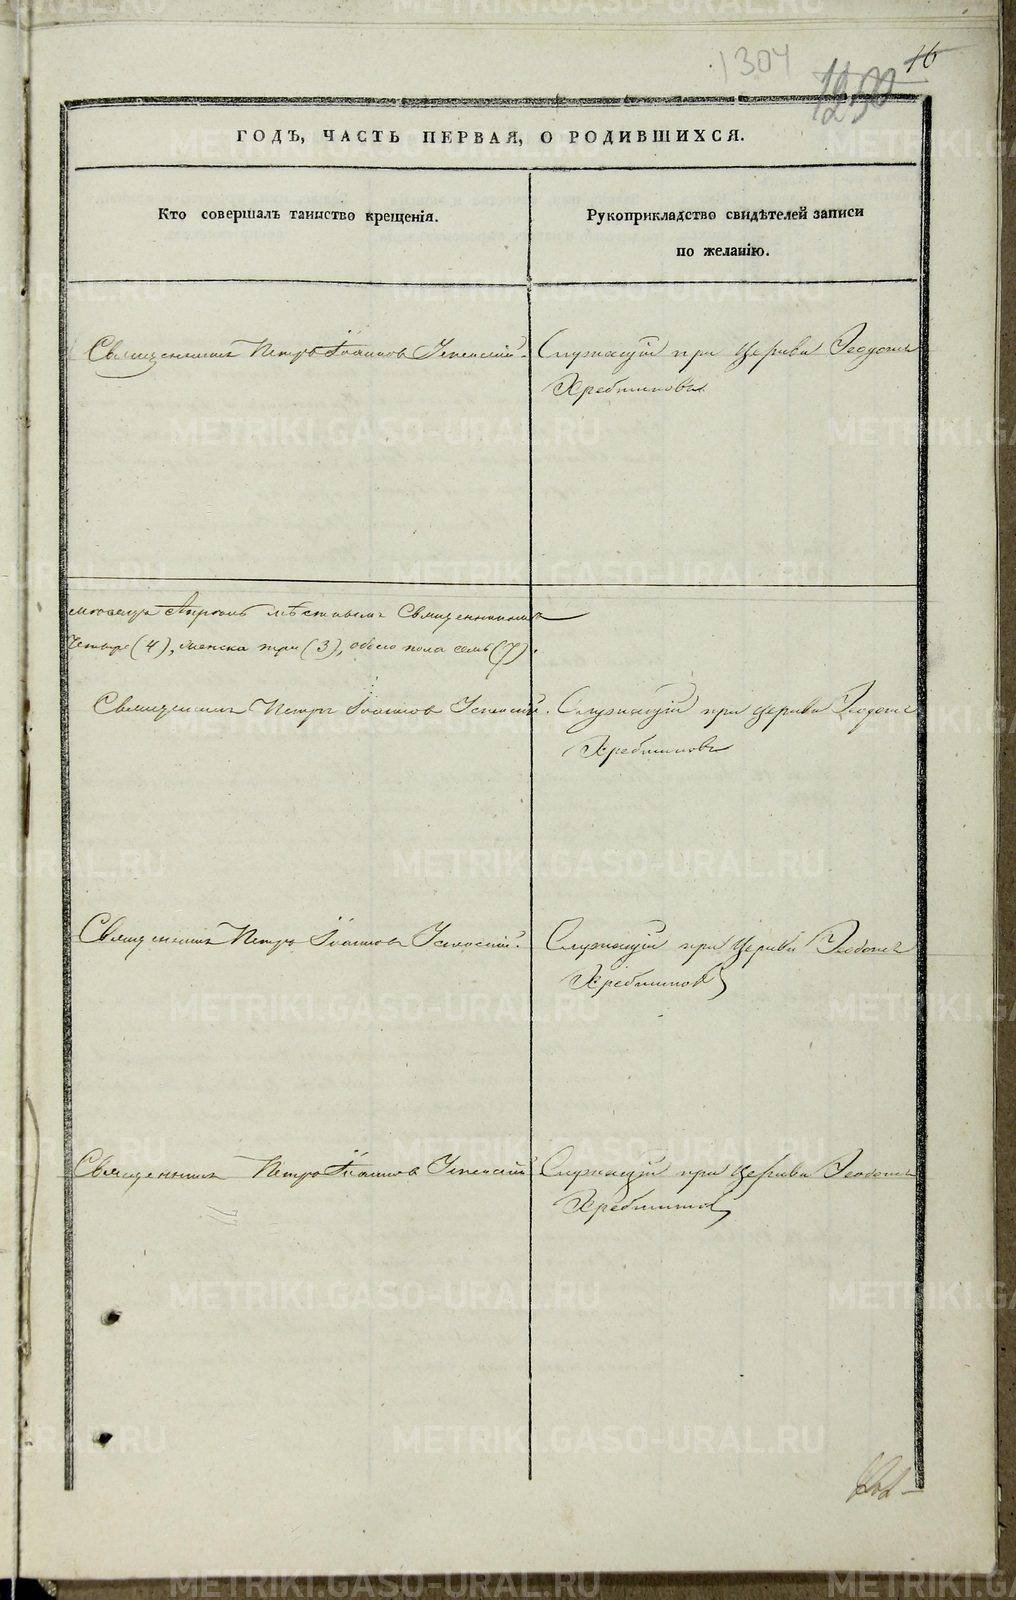 1304
16
1250
ГОДЪ, ЧАСТЬ ПЕРВАЯ, О РОДИВШИХСЯ.
Кто совершалъ таинство крещенія.
Рукоприкладство свидѣтелей записи
по желанію.
Священникъ Петръ Іоанновъ Успенскій.
Служащій при Церкви Ѳеодоръ
Хребтиковъ
месяцъ Апрѣль мѣстнымъ Священникомъ
четыре (4), женска три (3), обоего пола семь (7).
Священникъ Петръ Іоанновъ Успенскій.
Служащій при церкви Ѳеодоръ
Хребтиковъ
Священникъ Петръ Іоанновъ Успенскій.
Служащій при Церкви Ѳеодоръ
Хребтиковъ
Священникъ Петръ Іоанновъ Успенскій
Служащій при Церкви Ѳеодоръ
Хребтиковъ
METRIKI.GASO-URAL.RU